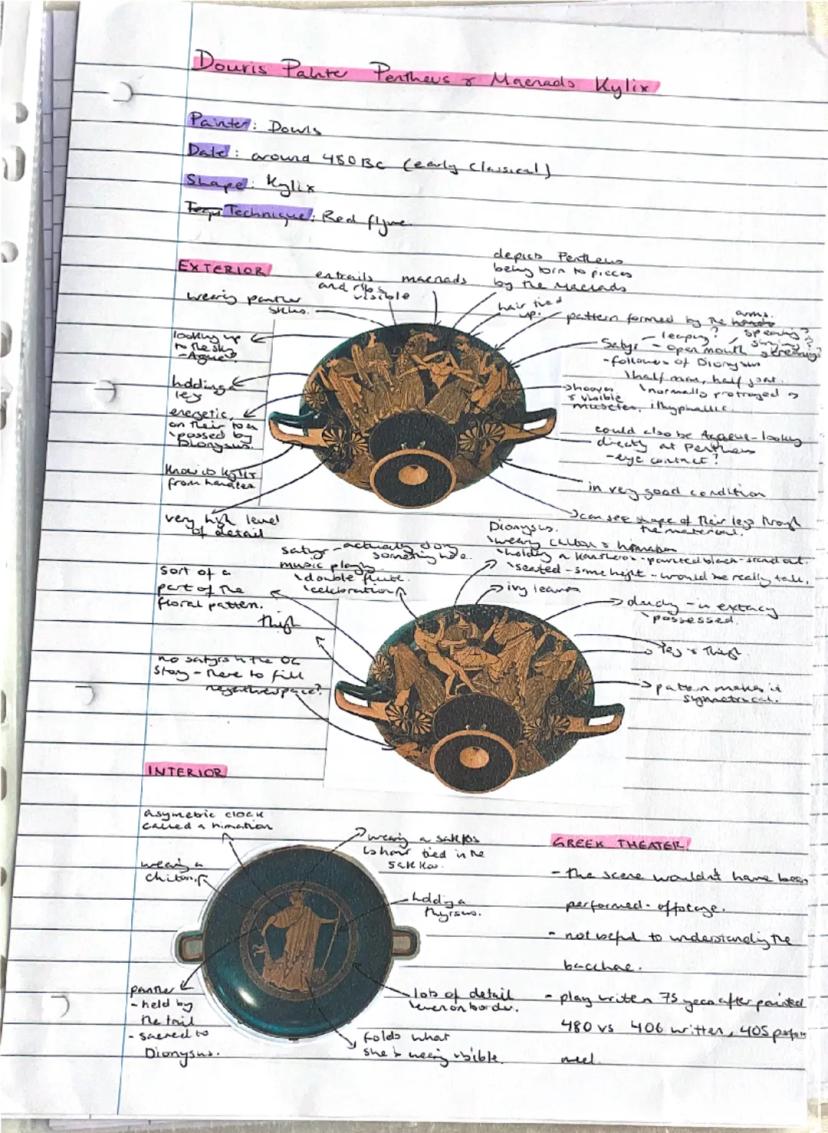 Douris Painter Pentheus & Maenads Kylix
Painter: Douris
Date: around 480 BC (early Classical)
Shape: Kylix
Technique: Red figure
EXTERIOR
wearing panther
skins.
entrails
and ribs
visible
maenads
depicts Pentheus
being torn to pieces
by the Maenads
hair tied
up.
pattern formed by the hands
arms.
looking up
to the sky
- Agave?
holding
leg
energetic,
on their toes
possessed by
Dionysus.
know is kylix
from handles
very high level
of detail
Satyr - leaping?
open mouth
speaking?
singing?
screaming?
- follower of Dionysus
half man, half goat.
normally portrayed as
ithyphallic.
hooves
& visible
muscles,
could also be Agave - looking
directly at Pentheus
- eye contact?
in very good condition
can see shape of their legs through
the material.
Dionysus.
wearing chiton & himation
holding a kantharos - painted black - stand out.
seated - same hight - would be really tall.
satyr - actually doing
something here.
music playing
double flute.
celebration
sort of a
part of the
floral pattern.
thigh
ivy leaves
- in extacy
possessed.
leg & thigh
pattern makes it
symmetrical.
no satyrs in the OG
story - here to fill
negative space?
INTERIOR
asymetric cloak
called a himation
wearing a
chiton.
wearing a sakkos
hair tied in the
sakkos.
holding a
thyrsus.
panther
- held by
the tail
- sacred to
Dionysus.
lots of detail
even on border.
folds what
she's wearing visible.
GREEK THEATER
- the scene wouldn't have been
performed - offstage.
- not useful to understanding the
bacchae.
- play written 75 years after painted
480 vs 406 written, 405 perfor
med.